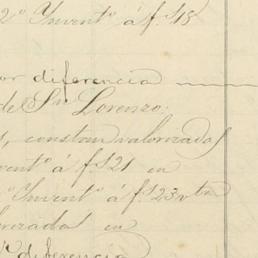 2º Invent.º á f.s 18
or diferencia
del Sr. Lorenzo.
s, constan valorizados
vent.º á f.s 21 en
º Invent.º á f.s 23 vta
orizados en
diferencia